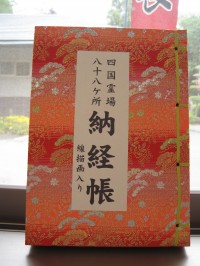 四国霊場
八十八ケ所
納経帳
線描画入り